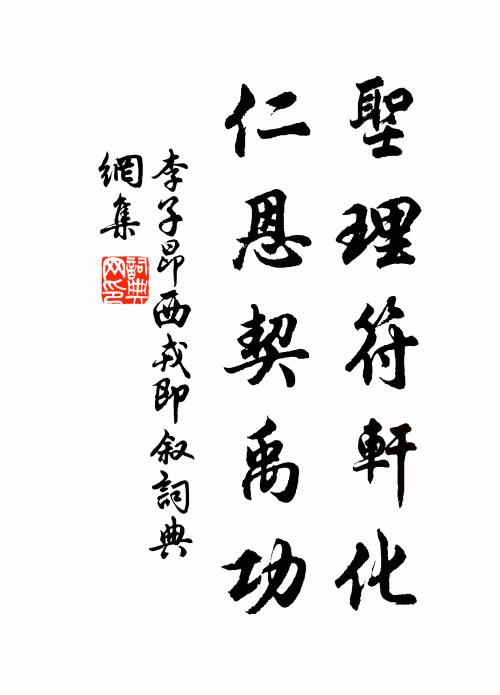 聖理符軒化
仁恩契禹功
李子昂西戎即叙詞典
網集
詞典網印